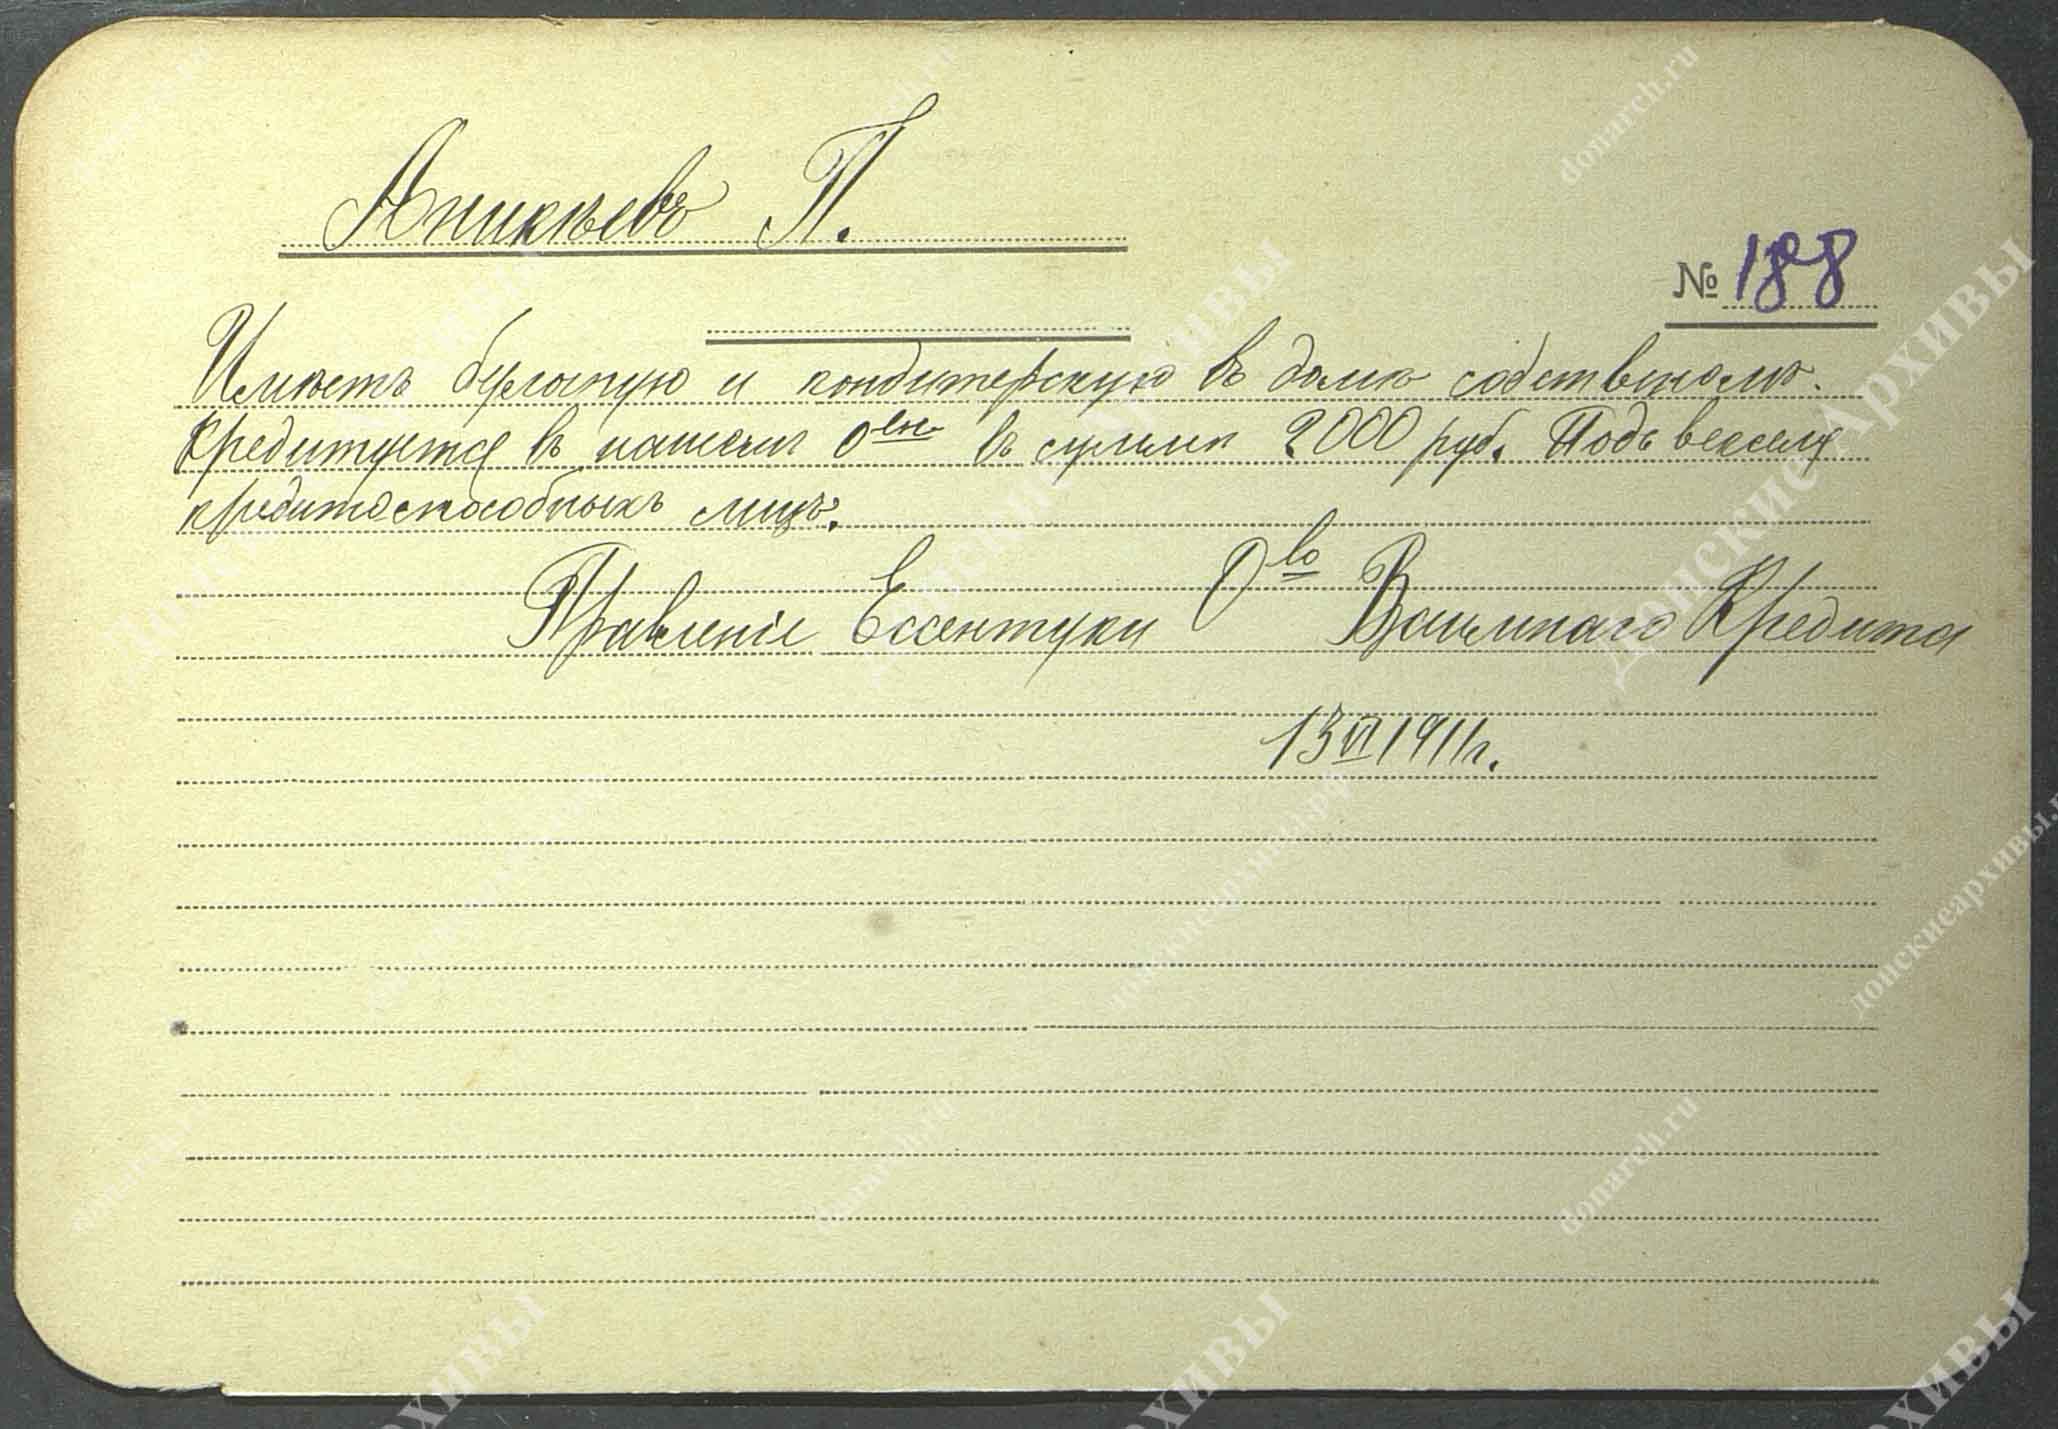 Аникѣевъ П.
№ 188
Имѣетъ булочную и кондитерскую въ домѣ собственомъ.
Кредитуется въ нашемъ О-ве въ суммѣ 2000 руб. Подъ векселя
кредитоспособныхъ лицъ.
Правленіе Ессентуки О-во Взаимнаго Кредита
13 VI 1911 г.
donarch.ru
Донские Архивы
донскиеархивы.рф